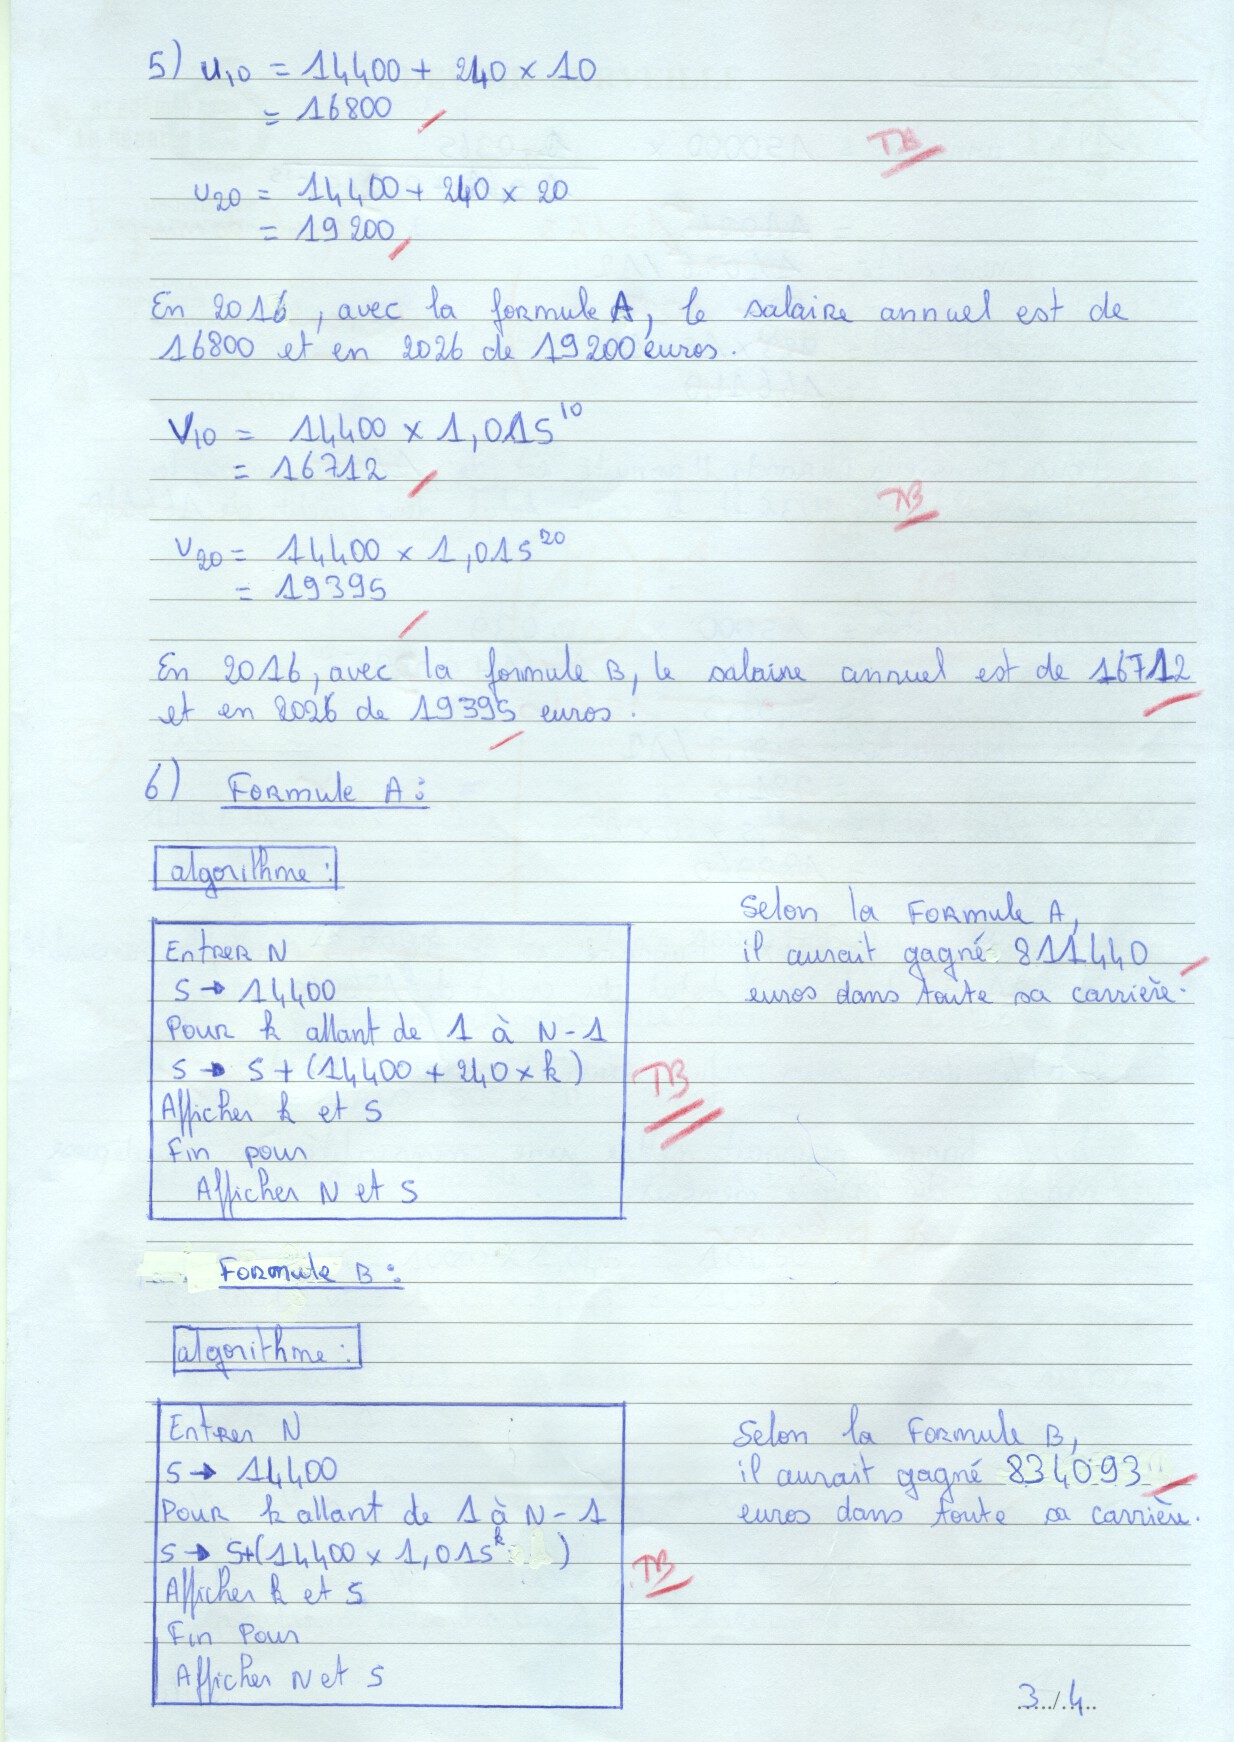 5) u10 = 14400 + 240 × 10
= 16800
TB
u20 = 14400 + 240 × 20
= 19200
En 2016, avec la formule A, le salaire annuel est de
16800 et en 2026 de 19200 euros.
V10 = 14400 × 1,015^10
= 16712
TB
V20 = 14400 × 1,015^20
= 19395
En 2016, avec la formule B, le salaire annuel est de 16712
et en 2026 de 19395 euros.
6) Formule A :
algorithme :
Entrer N
S → 14400
Pour k allant de 1 à N-1
S → S + (14400 + 240 × k)
Afficher k et S
Fin pour
Afficher N et S
Selon la Formule A,
il aurait gagné 811440
euros dans toute sa carrière.
TB
Formule B :
algorithme :
Entrer N
S → 14400
Pour k allant de 1 à N-1
S → S+(14400 × 1,015^k)
Afficher k et S
Fin Pour
Afficher N et S
Selon la Formule B,
il aurait gagné 834093
euros dans toute sa carrière.
TB
3../.4..